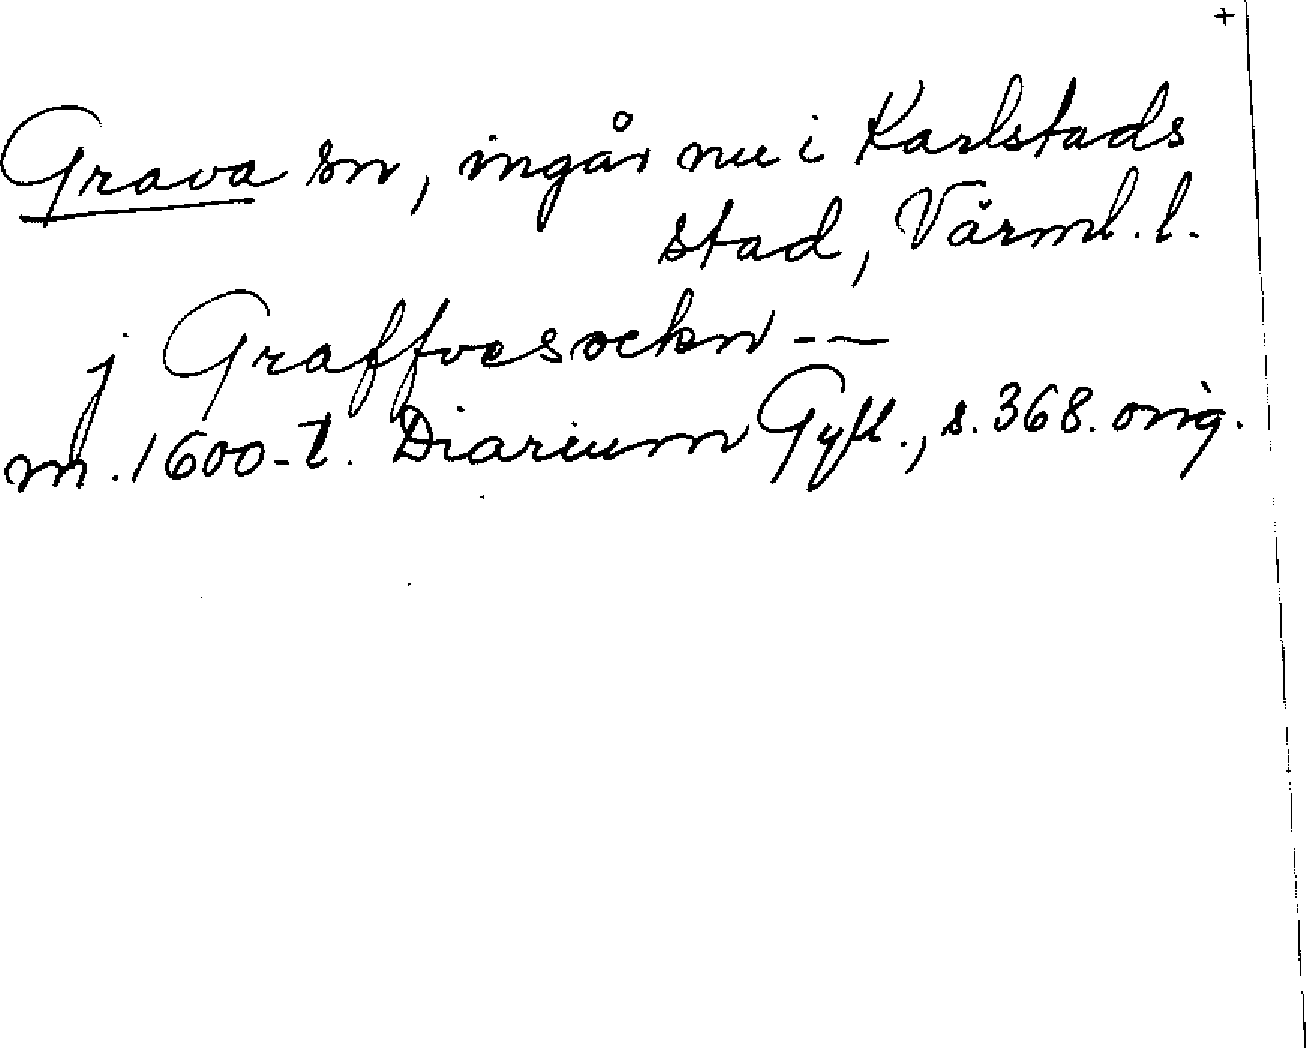 +
Grava sn, ingår nu i Karlstads
stad, Värml. l.
j Graffvesockn --
m. 1600-t. Diarium Gyll., s. 368. orig.